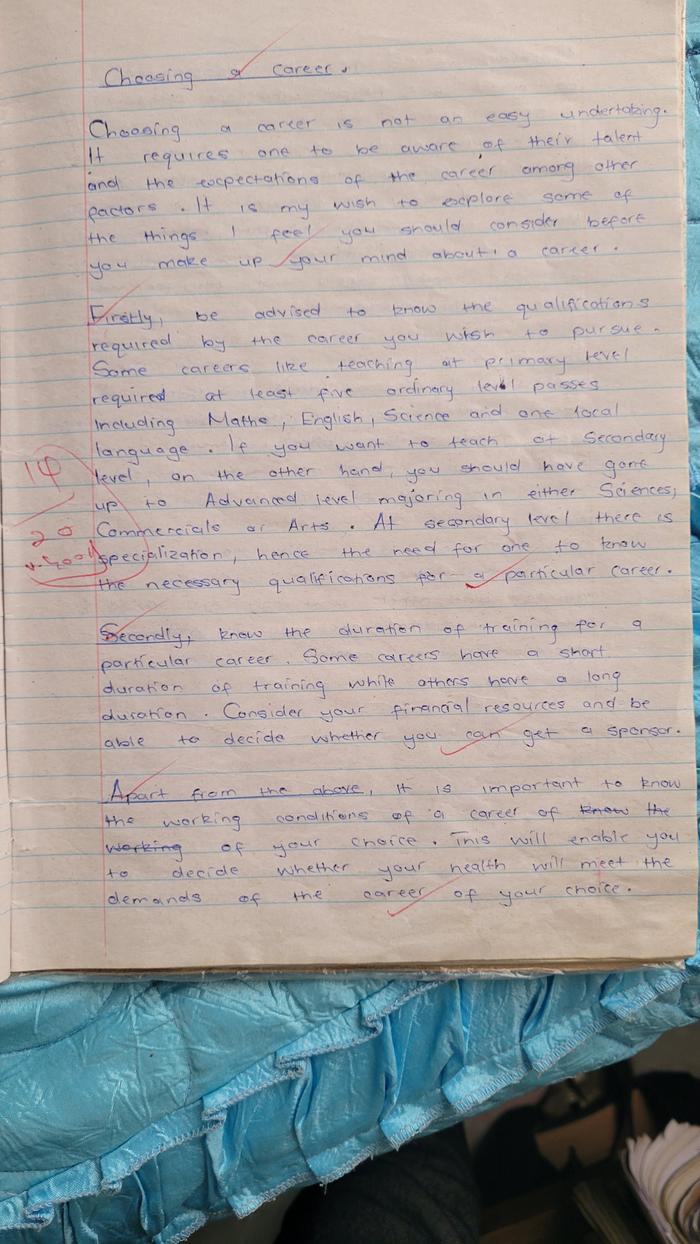 Choosing a career.
Choosing a career is not an easy undertaking.
It requires one to be aware of their talent
and the expectations of the career among other
factors. It is my wish to explore some of
the things I feel you should consider before
you make up your mind about a career.
Firstly, be advised to know the qualifications
required by the career you wish to pursue.
Some careers like teaching at primary level
required at least five ordinary level passes
including Maths, English, Science and one local
language. If you want to teach at Secondary
level, on the other hand, you should have gone
up to Advanced level majoring in either Sciences,
Commercials or Arts. At secondary level there is
specialization, hence the need for one to know
the necessary qualifications for a particular career.
14
20
v. good
Secondly, know the duration of training for a
particular career. Some careers have a short
duration of training while others have a long
duration. Consider your financial resources and be
able to decide whether you can get a sponsor.
Apart from the above, it is important to know
the working conditions of a career of know the
working of your choice. This will enable you
to decide whether your health will meet the
demands of the career of your choice.